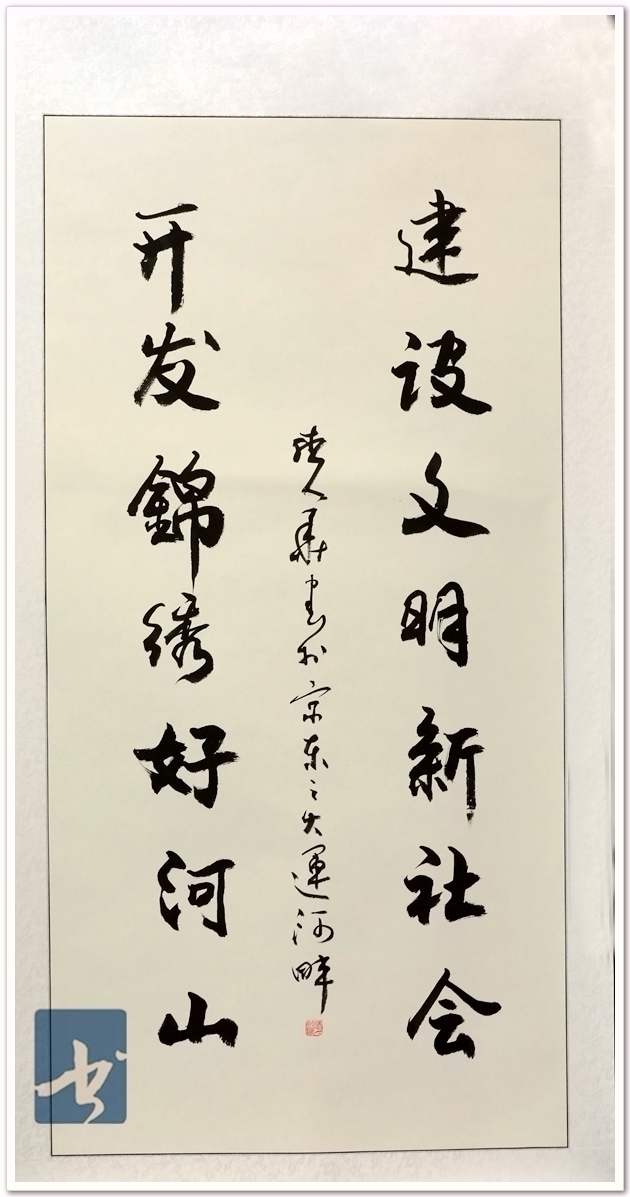 建设文明新社会
开发錦绣好河山
人華書於京东之大運河畔
书